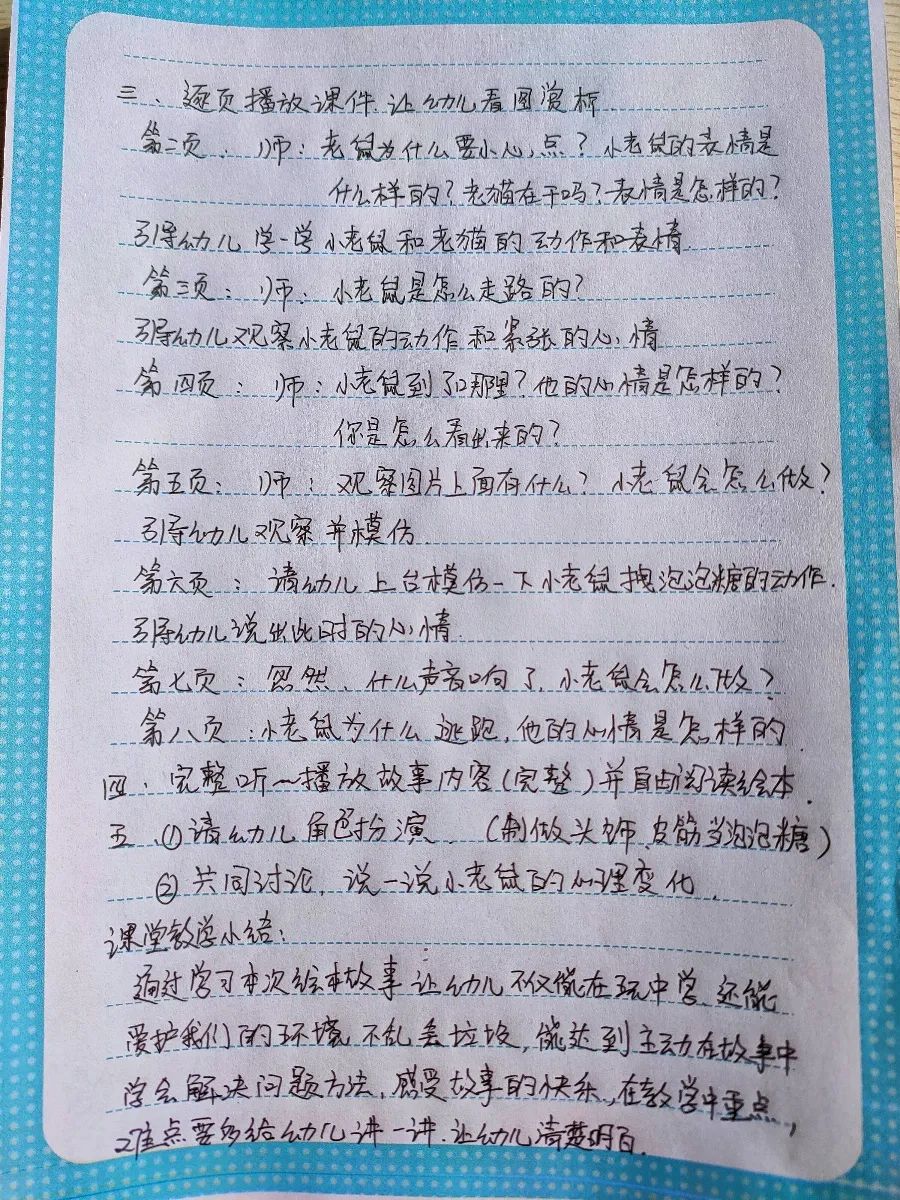 三、逐页播放课件.让幼儿看图赏析
第二页、师:老鼠为什么要小心点?小老鼠的表情是
什么样的?老猫在干吗?表情是怎样的?
引导幼儿学一学小老鼠和老猫的动作和表情.
第三页:师:小老鼠是怎么走路的?
引导幼儿观察小老鼠的动作和紧张的心情
第四页:师:小老鼠到了哪里?他的心情是怎样的?
你是怎么看出来的?
第五页:师:观察图片上面有什么?小老鼠会怎么做?
引导幼儿观察并模仿
第六页:请幼儿上台模仿一下小老鼠拽泡泡糖的动作.
引导幼儿说出此时的心情.
第七页:忽然、什么声音响了,小老鼠会怎么做?
第八页:小老鼠为什么逃跑,他的心情是怎样的.
四、完整听~播放故事内容(完整)并自由阅读绘本.
五、①请幼儿角色扮演.(制做头饰,皮筋当泡泡糖)
②共同讨论,说一说小老鼠的心理变化.
课堂教学小结:
通过学习本次绘本故事让幼儿不仅能在玩中学,还能
爱护我们的环境,不乱丢垃圾,能达到主动在故事中
学会解决问题方法,感受故事的快乐,在教学中重点,
难点要多给幼儿讲一讲.让幼儿清楚明白.